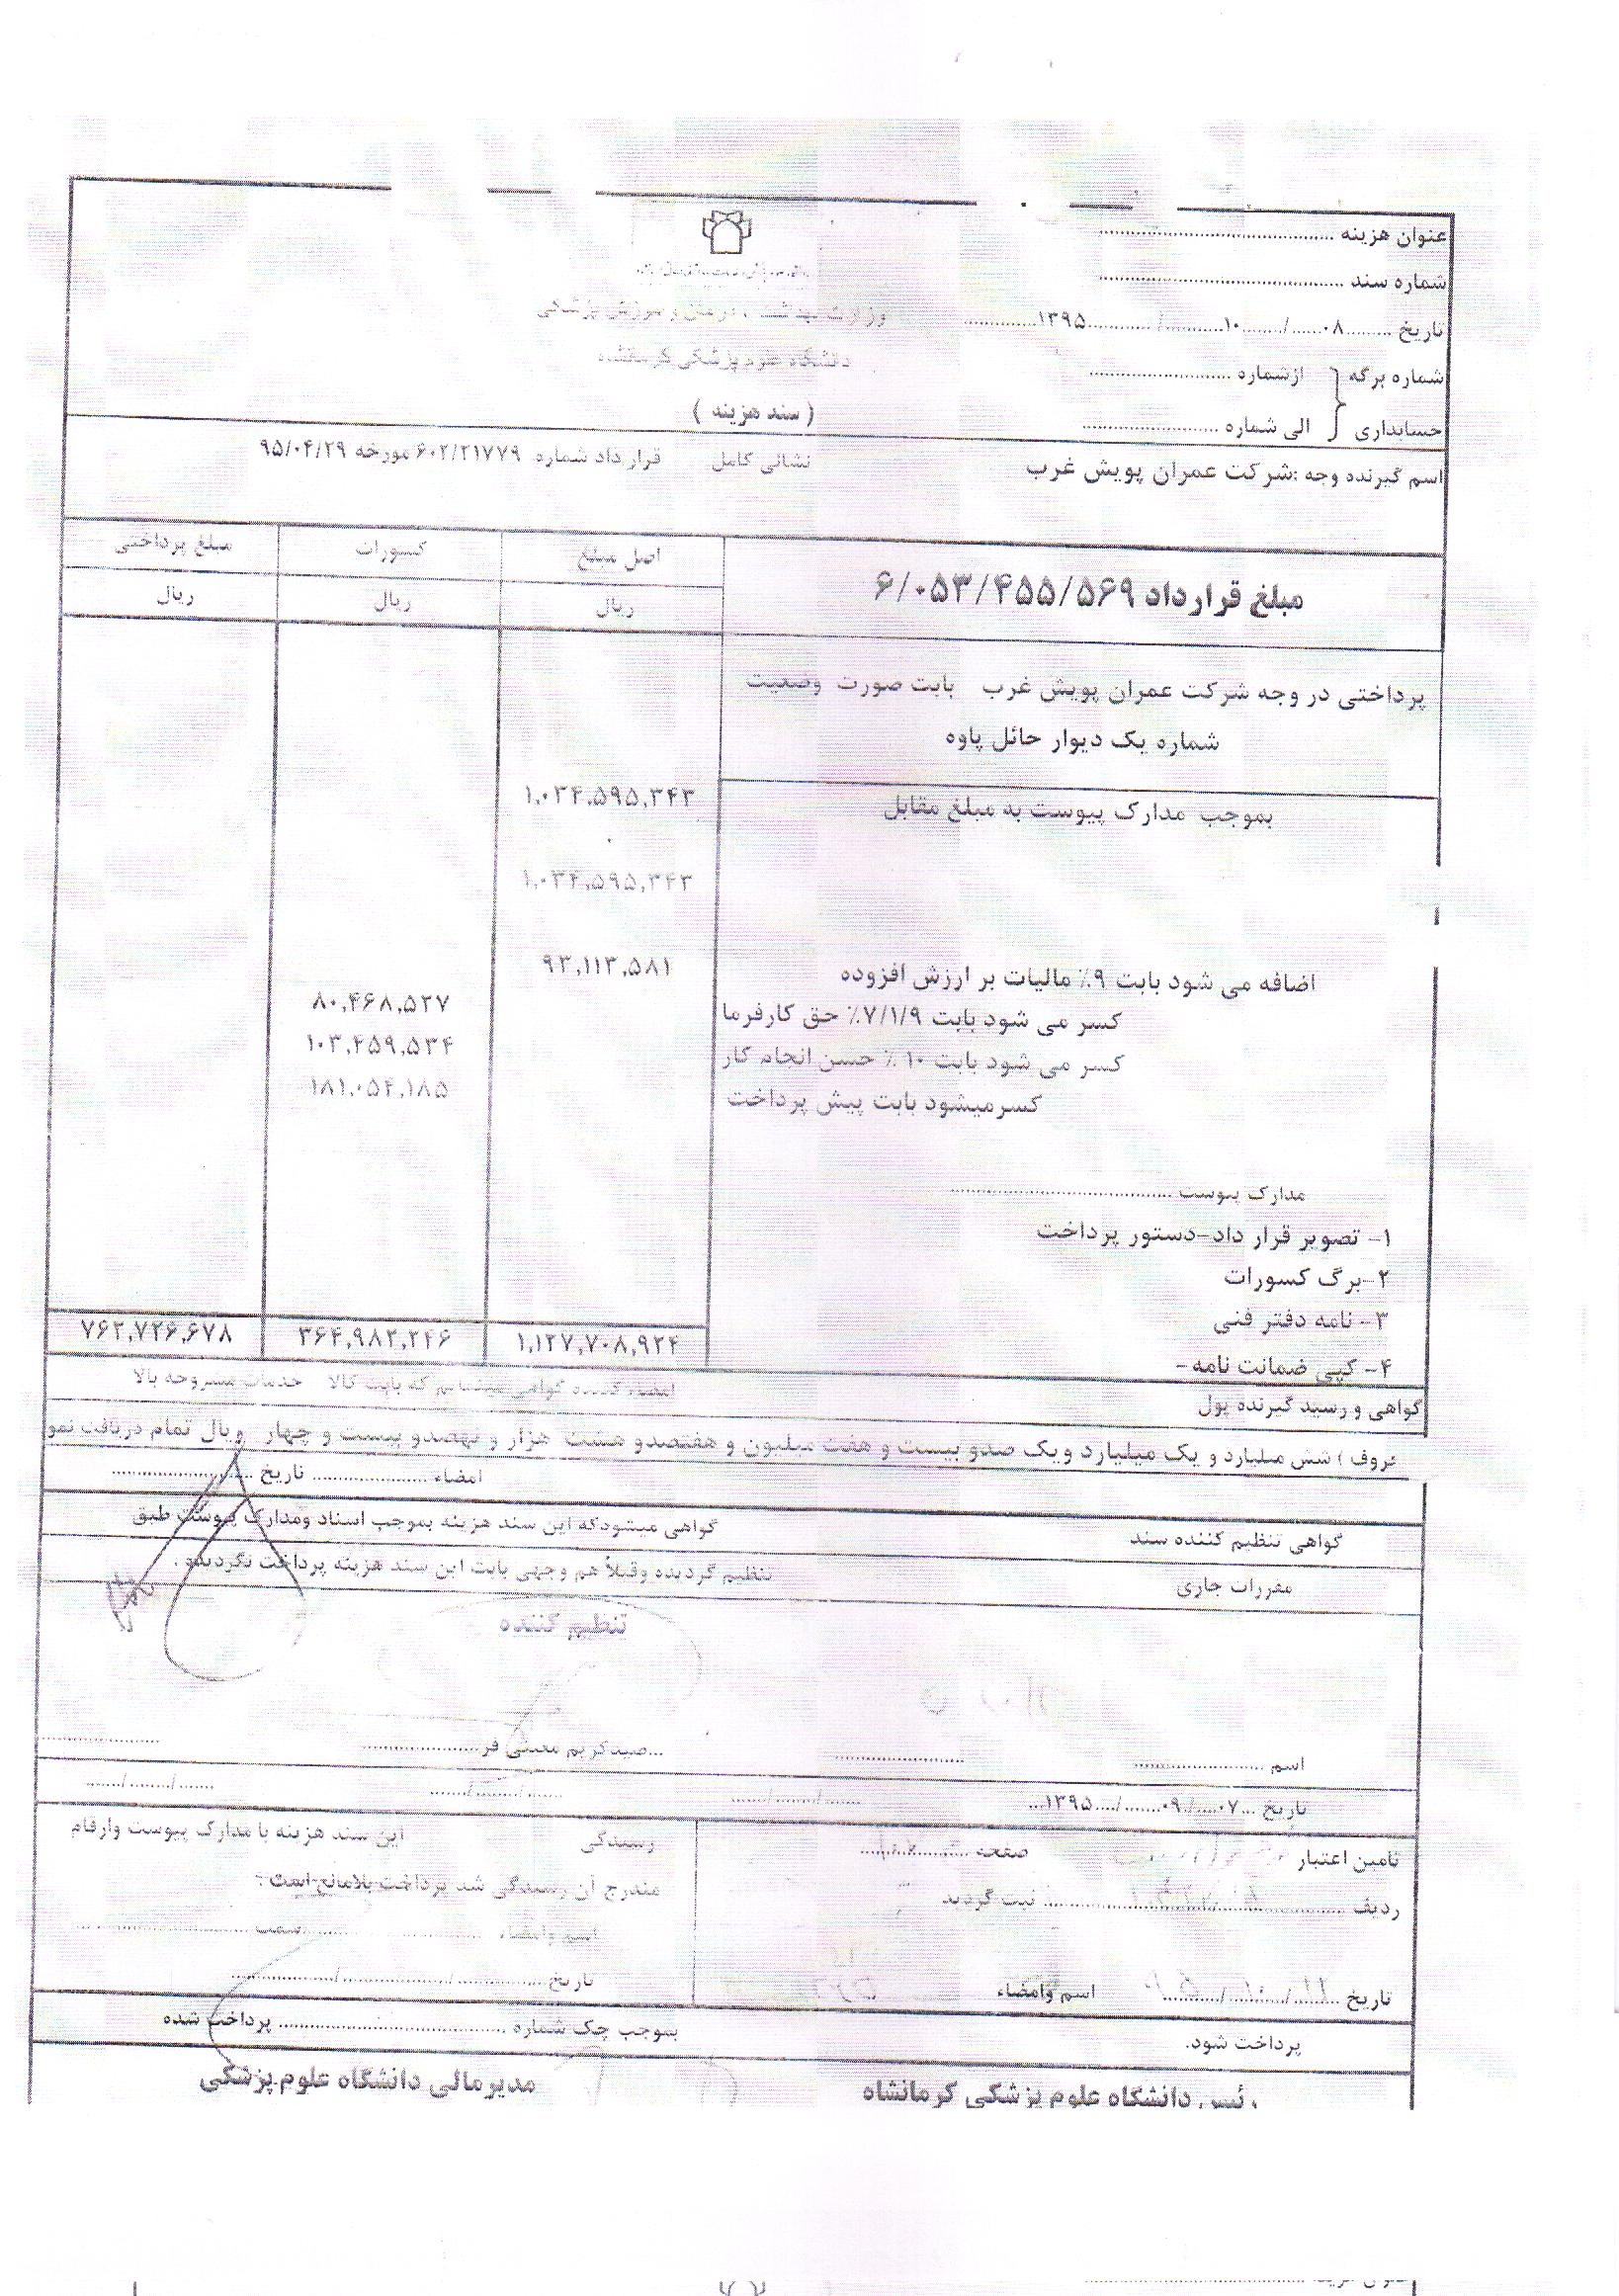 عنوان هزینه ........................................
شماره سند ........................................
تاریخ ........۰۸....../.......۱۰........../...........۱۳۹۵.............
وزارت بهداشت ، درمان و آموزش پزشکی
دانشگاه علوم پزشکی کرمانشاه
شماره برگه حسابداری
ازشماره ........................
الی شماره ........................
( سند هزینه )
اسم گیرنده وجه :شرکت عمران پویش غرب
نشانی کامل قرار داد شماره ۶۰۲/۲۱۷۷۹ مورخه ۹۵/۰۴/۲۹
مبلغ قرارداد ۶/۰۵۳/۴۵۵/۵۶۹
اصل مبلغ کسورات مبلغ پرداختی
ریال ریال ریال
پرداختی در وجه شرکت عمران پویش غرب بابت صورت وضعیت
شماره یک دیوار حائل پاوه
بموجب مدارک پیوست به مبلغ مقابل ۱,۰۳۴,۵۹۵,۳۴۳
۰
۱,۰۳۴,۵۹۵,۳۴۳
اضافه می شود بابت ۹٪ مالیات بر ارزش افزوده ۹۳,۱۱۳,۵۸۱
کسر می شود بابت ۷/۱/۹٪ حق کارفرما ۸۰,۴۶۸,۵۲۷
کسر می شود بابت ۱۰ ٪ حسن انجام کار ۱۰۳,۴۵۹,۵۳۴
کسرمیشود بابت پیش پرداخت ۱۸۱,۰۵۴,۱۸۵
مدارک پیوست ........................
۱- تصویر قرار داد-دستور پرداخت
۲-برگ کسورات
۳- نامه دفتر فنی
۴- کپی ضمانت نامه -
۱,۱۲۷,۷۰۸,۹۲۴ ۳۶۴,۹۸۲,۲۴۶ ۷۶۲,۷۲۶,۶۷۸
گواهی و رسید گیرنده پول امضاء کننده گواهی مینمایم که بابت کالا خدمات مشروحه بالا
حروف ) شش میلیارد و یک میلیارد ویک صدو بیست و هفت میلیون و هفتصدو هشت هزار و نهصدو بیست و چهار ریال تمام دریافت نمو
امضاء ...................... تاریخ ........................
گواهی تنظیم کننده سند گواهی میشودکه این سند هزینه بموجب اسناد ومدارک پیوست طبق
مقررات جاری تنظیم گردیده وقبلاً هم وجهی بابت این سند هزینه پرداخت نگردیده .
تنظیم کننده
اسم ........................ ...صیدکریم معینی فر........................
تاریخ ...۰۷..../..۰۹......./....۱۳۹۵...
تامین اعتبار صفحه ....................
ردیف ........................ ثبت گردید
تاریخ ........../........../.......... اسم وامضاء
رسیدگی این سند هزینه با مدارک پیوست وارقام
مندرج آن رسیدگی شد پرداخت بلامانع است .
اسم وامضاء ........................سمت ........................
تاریخ................/................/................
پرداخت شود. بموجب چک شماره ........................ پرداخت شده
رئیس دانشگاه علوم پزشکی کرمانشاه مدیرمالی دانشگاه علوم پزشکی